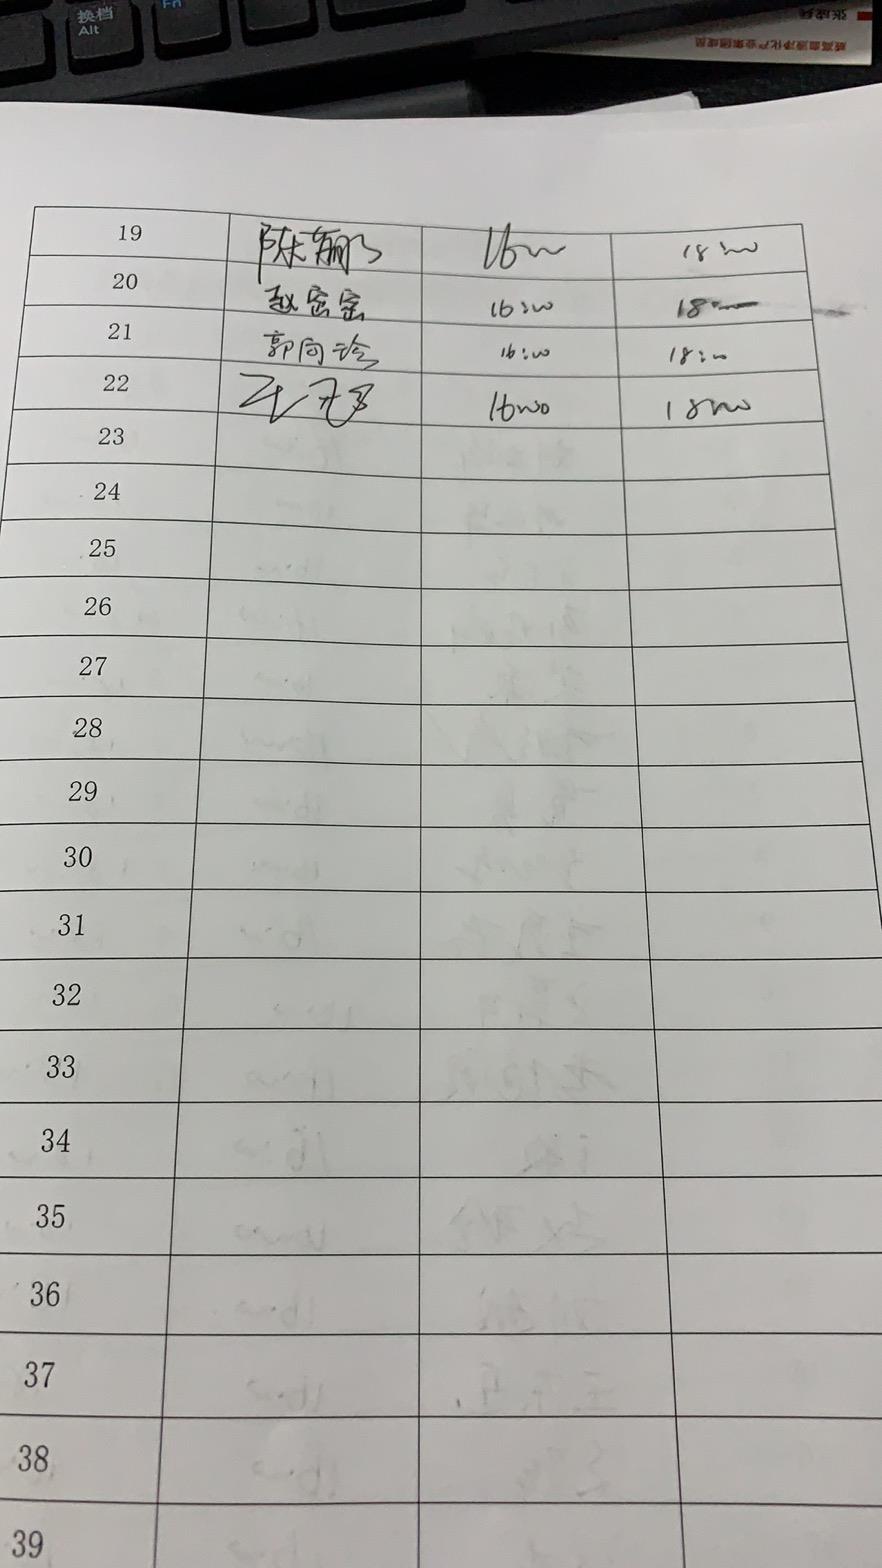 换档
Alt
Fn
威高血液净化产业集团成员
19 陈翔 16:00 18:00
20 赵密密 16:00 18:00
21 郭向玲 16:00 18:00
22 16:00 18:00
23
24
25
26
27
28
29
30
31
32
33
34
35
36
37
38
39